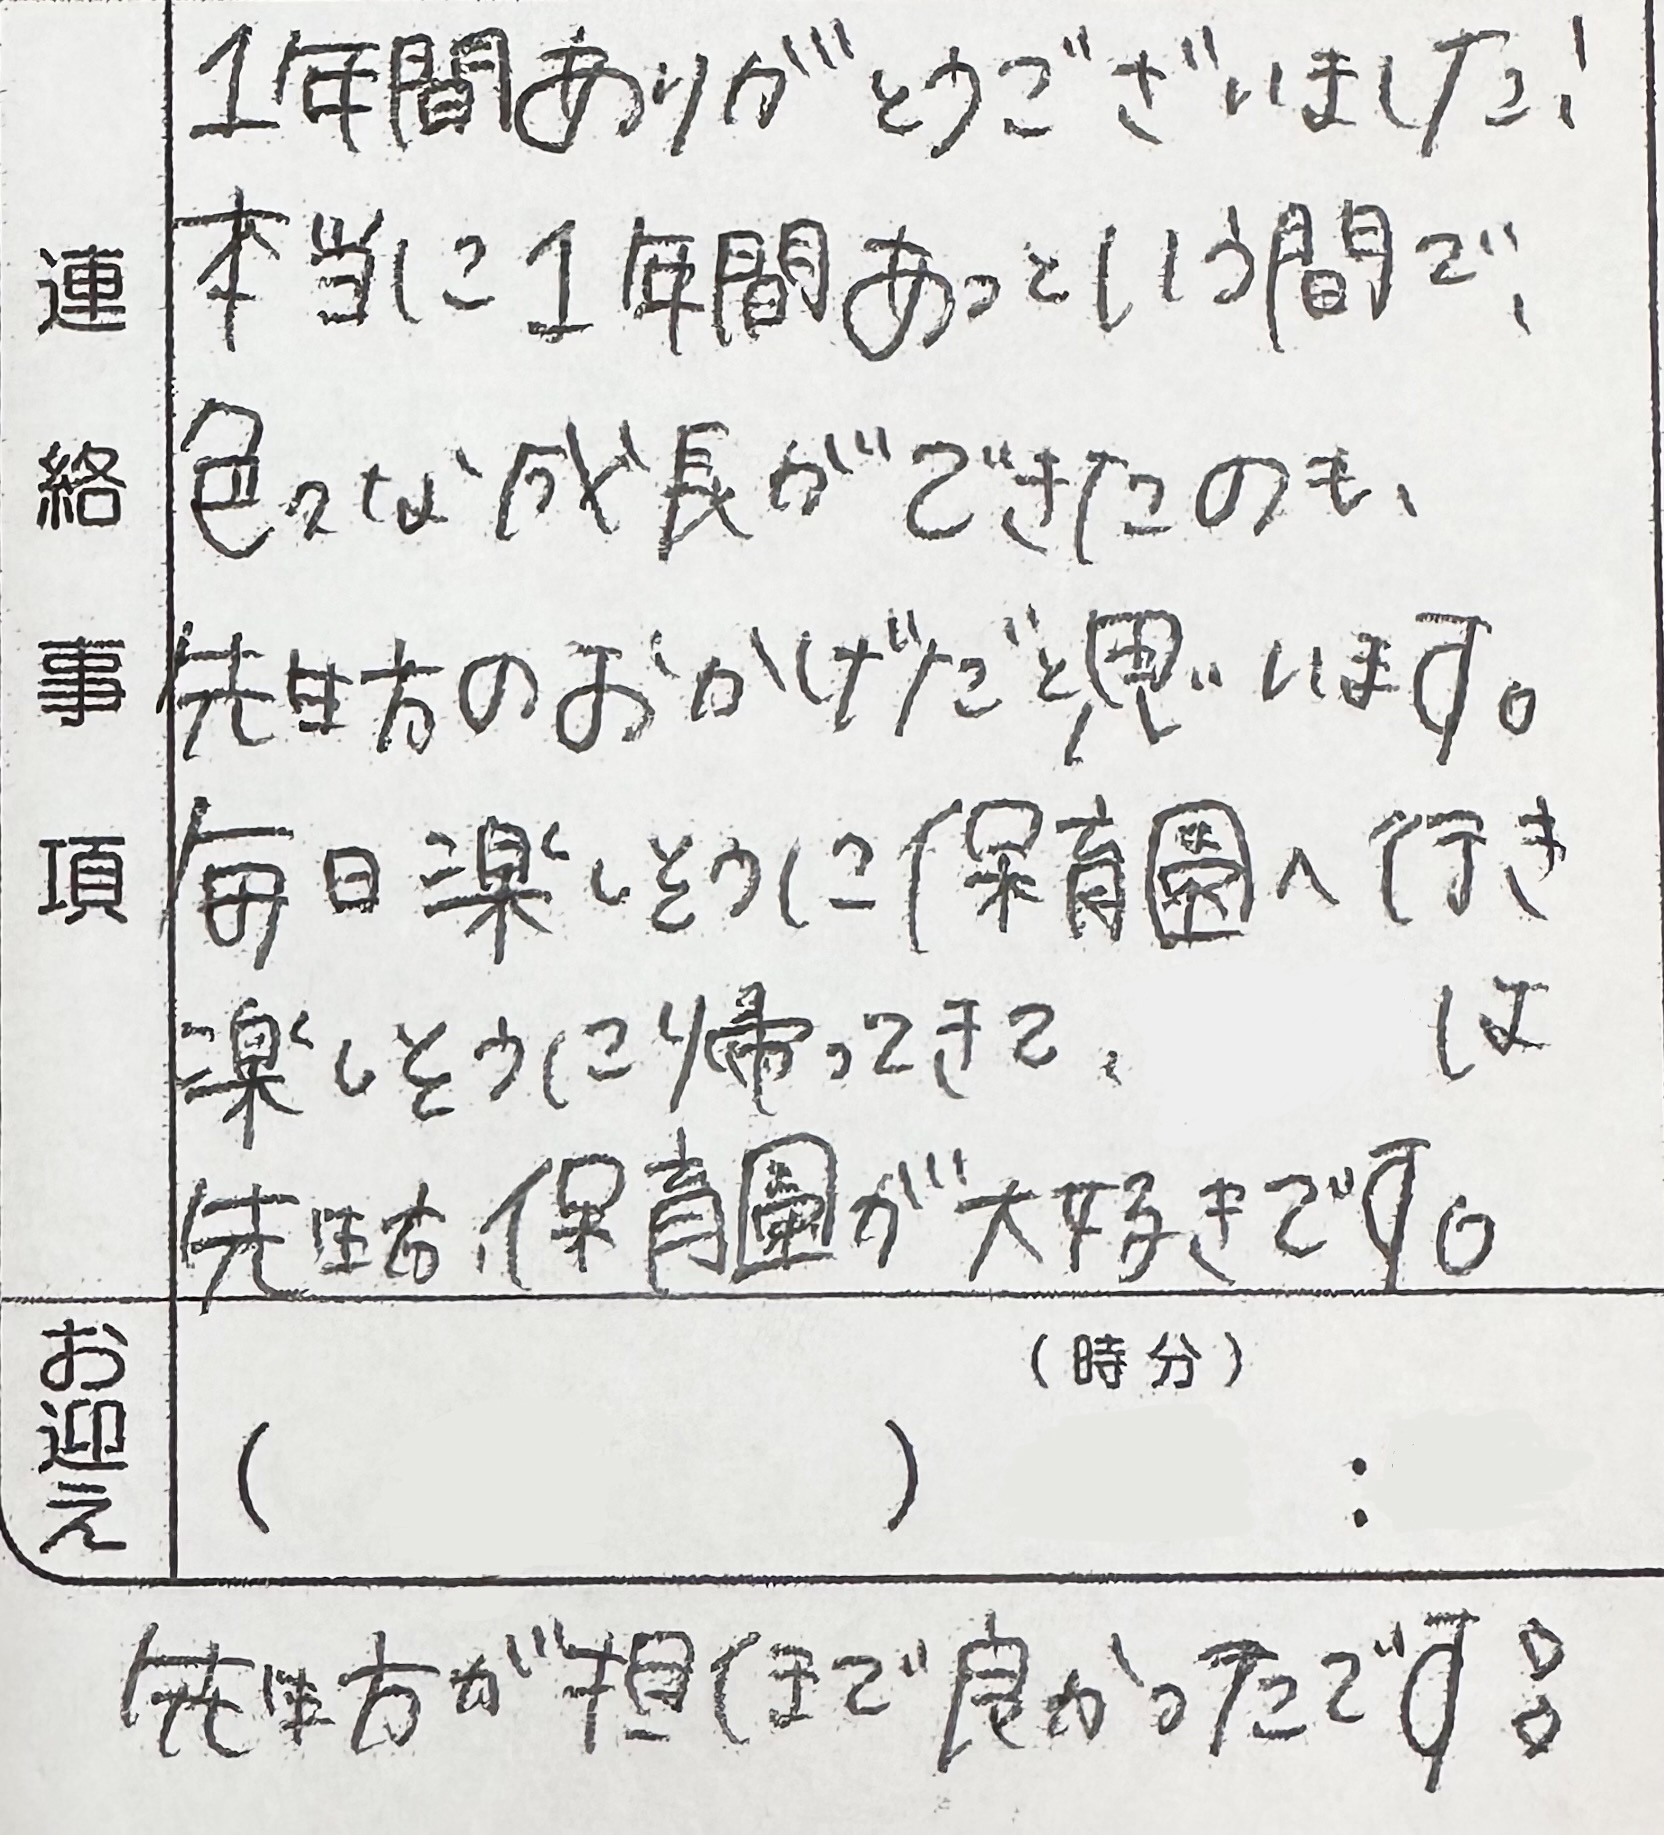 1年間ありがとうございました!
本当に1年間あっという間で、
色々な成長ができたのも、
先生方のおかげだと思います。
毎日楽しそうに保育園へ行き
楽しそうに帰ってきて、 は
先生方、保育園が大好きです。
連絡事項
お迎え
(時分)
( ) :
先生方が担任で良かったです!